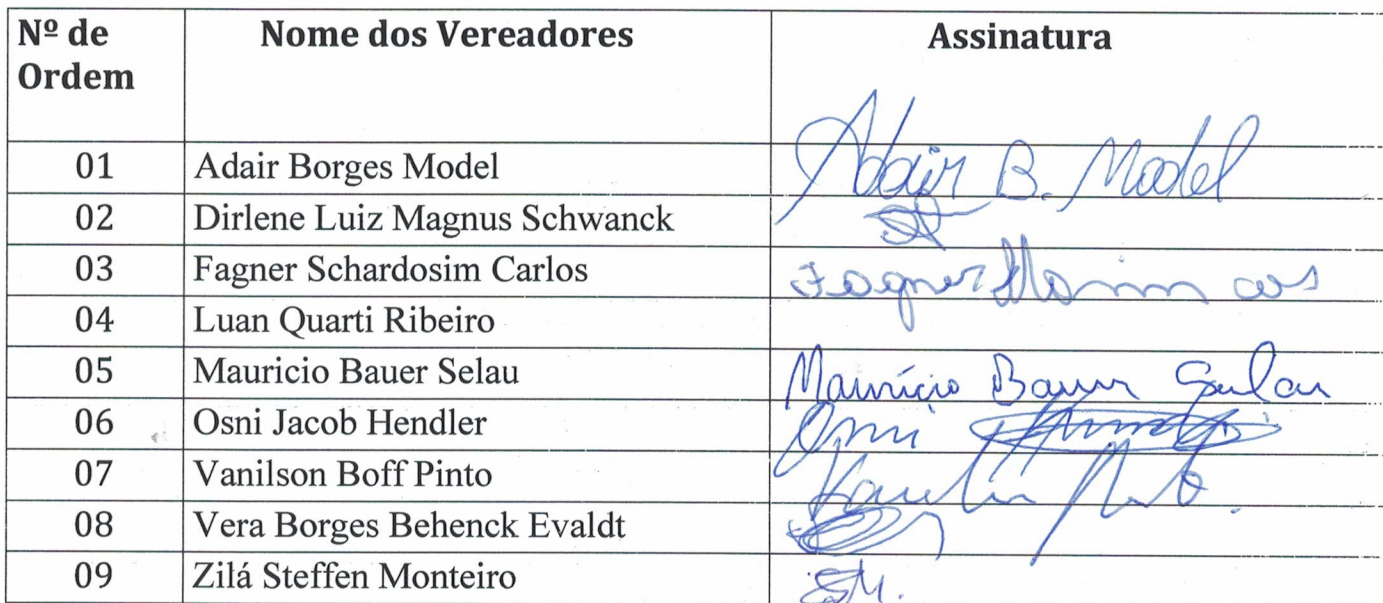 Nº de Ordem Nome dos Vereadores Assinatura
01 Adair Borges Model Adair B. Model
02 Dirlene Luiz Magnus Schwanck
03 Fagner Schardosim Carlos Fagner
04 Luan Quarti Ribeiro
05 Mauricio Bauer Selau Maurício Bauer Selau
06 Osni Jacob Hendler Osni
07 Vanilson Boff Pinto
08 Vera Borges Behenck Evaldt
09 Zilá Steffen Monteiro